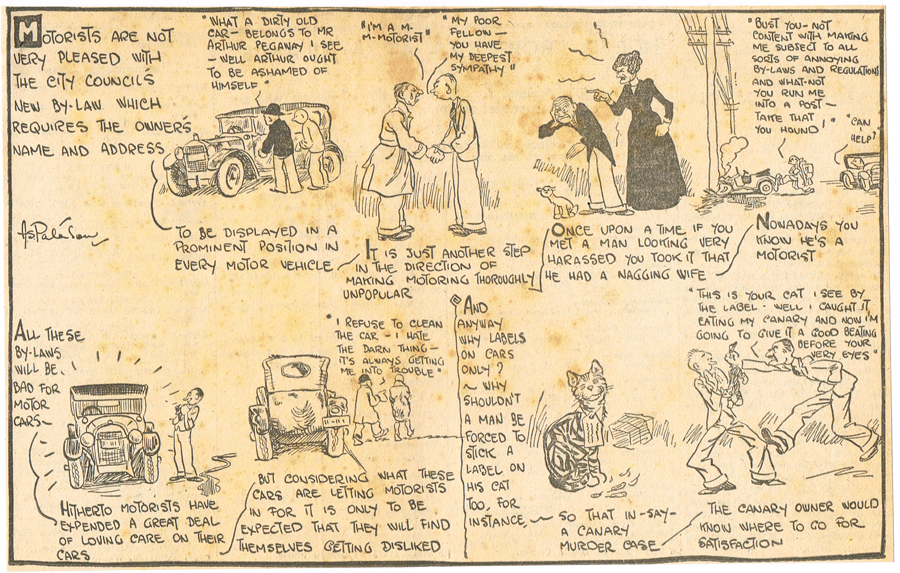 MOTORISTS ARE NOT
VERY PLEASED WITH
THE CITY COUNCIL'S
NEW BY-LAW WHICH
REQUIRES THE OWNER'S
NAME AND ADDRESS
"WHAT A DIRTY OLD
CAR - BELONGS TO MR
ARTHUR PEGAWAY I SEE
- WELL ARTHUR OUGHT
TO BE ASHAMED OF
HIMSELF"
TO BE DISPLAYED IN A
PROMINENT POSITION IN
EVERY MOTOR VEHICLE
"I'M A M-
M-MOTORIST"
"MY POOR
FELLOW -
YOU HAVE
MY DEEPEST
SYMPATHY"
IT IS JUST ANOTHER STEP
IN THE DIRECTION OF
MAKING MOTORING THOROUGHLY
UNPOPULAR
ONCE UPON A TIME IF YOU
MET A MAN LOOKING VERY
HARASSED YOU TOOK IT THAT
HE HAD A NAGGING WIFE
"BUST YOU - NOT
CONTENT WITH MAKING
ME SUBJECT TO ALL
SORTS OF ANNOYING
BY-LAWS AND REGULATIONS
AND WHAT-NOT
YOU RUN ME
INTO A POST -
TAKE THAT
YOU HOUND!"
"CAN I
HELP?"
NOWADAYS YOU
KNOW HE'S A
MOTORIST
ALL THESE
BY-LAWS
WILL BE
BAD FOR
MOTOR
CARS -
HITHERTO MOTORISTS HAVE
EXPENDED A GREAT DEAL
OF LOVING CARE ON THEIR
CARS
"I REFUSE TO CLEAN
THE CAR - I HATE
THE DARN THING -
IT'S ALWAYS GETTING
ME INTO TROUBLE"
BUT CONSIDERING WHAT THESE
CARS ARE LETTING MOTORISTS
IN FOR IT IS ONLY TO BE
EXPECTED THAT THEY WILL FIND
THEMSELVES GETTING DISLIKED
AND
ANYWAY
WHY LABELS
ON CARS
ONLY?
~ WHY
SHOULDN'T
A MAN BE
FORCED TO
STICK A
LABEL ON
HIS CAT
TOO, FOR
INSTANCE ~
SO THAT IN - SAY -
A CANARY
MURDER CASE
"THIS IS YOUR CAT I SEE BY
THE LABEL - WELL I CAUGHT IT
EATING MY CANARY AND NOW I'M
GOING TO GIVE IT A GOOD BEATING
BEFORE YOUR
VERY EYES"
THE CANARY OWNER WOULD
KNOW WHERE TO GO FOR
SATISFACTION